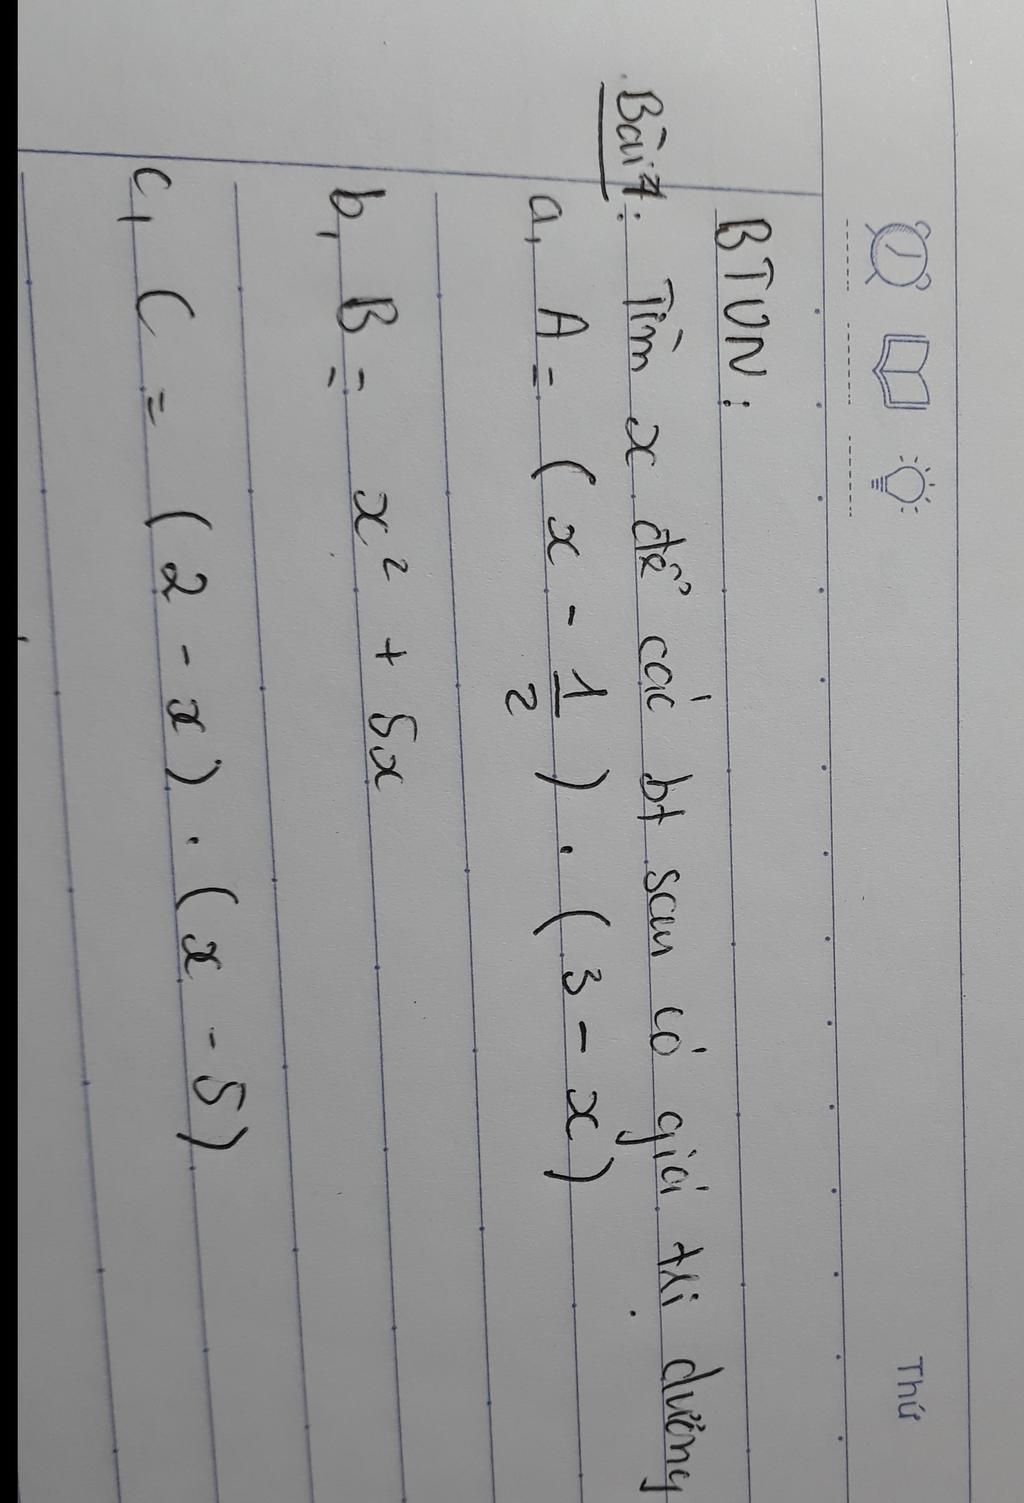 Thứ
BTVN:
Bài 7: Tìm x để các bt sau có giá trị dương
a, A = (x - 1/2) . (3 - x)
b, B = x² + 5x
c, C = (2 - x) . (x - 5)